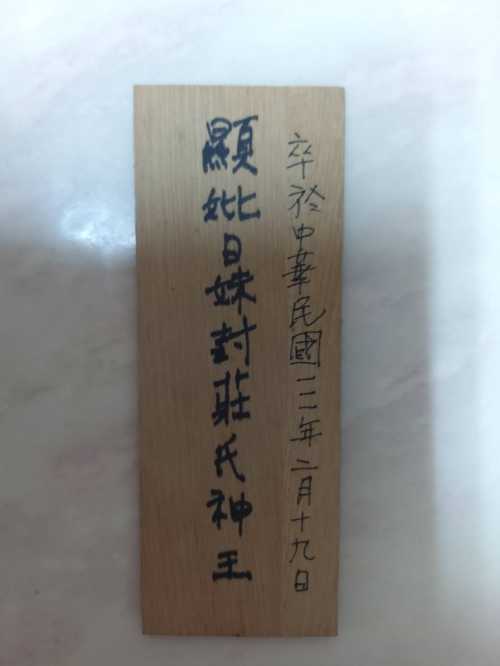 卒於中華民國一一二年二月十九日
顯妣日妹封莊氏神王